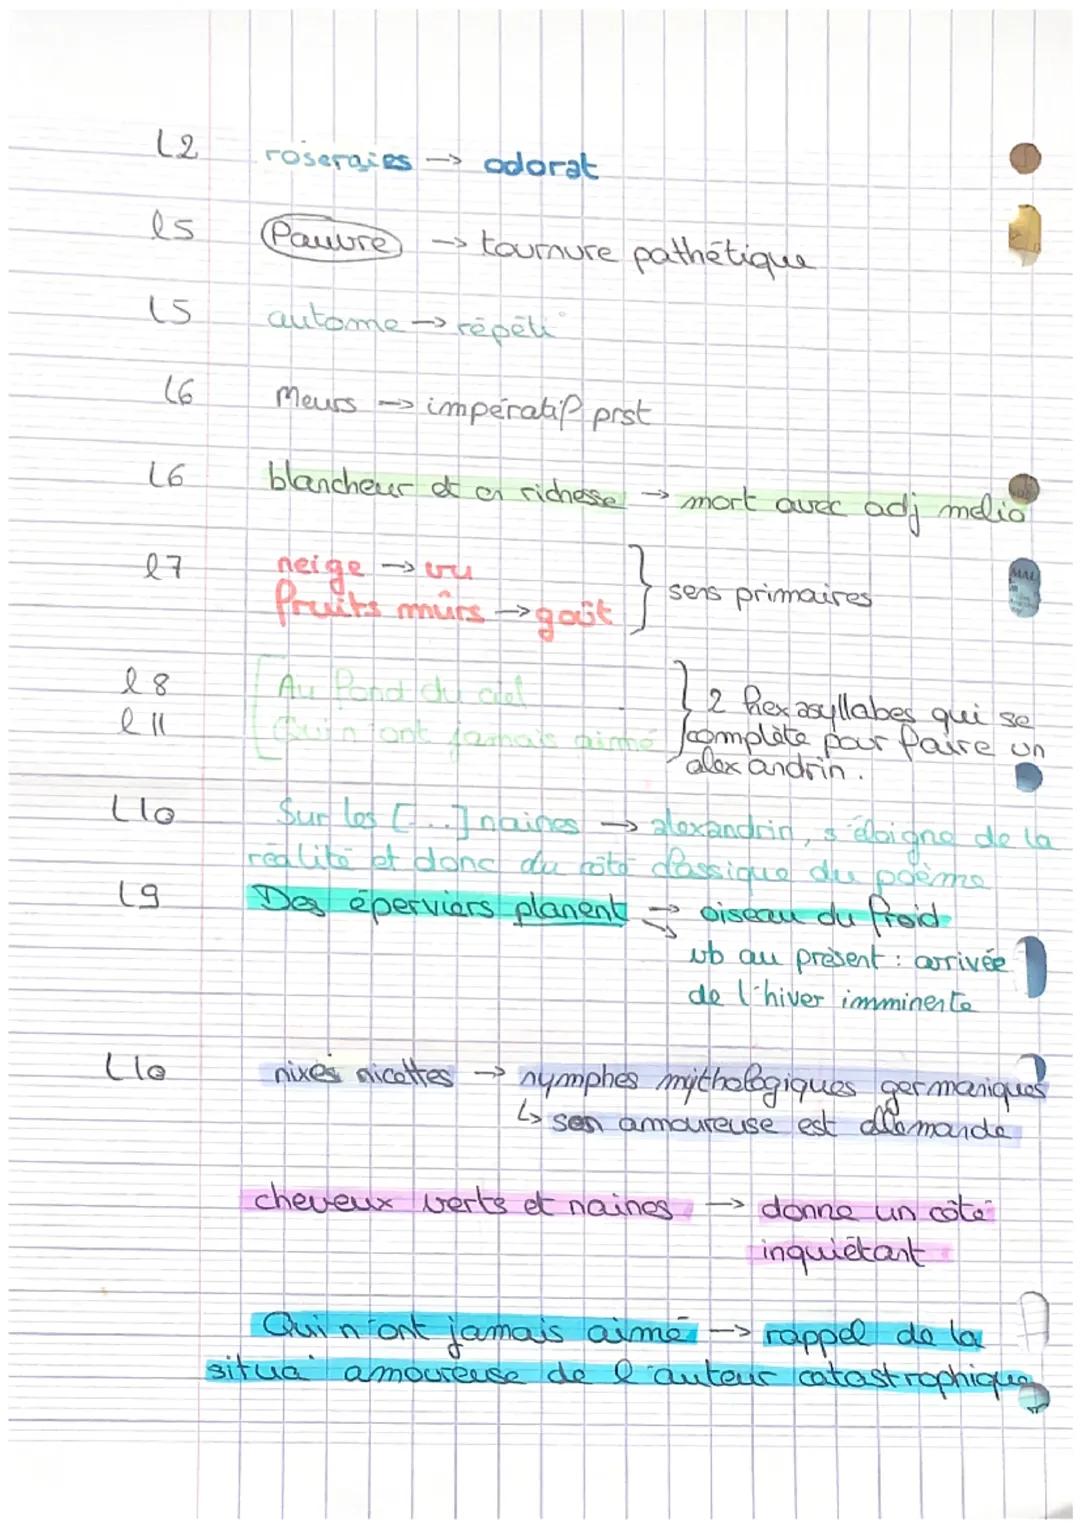 L2 roseraies → odorat
l5 Pauvre → tournure pathétique
L5 automne → répéti°
L6 Meurs → impératif prst
L6 blancheur et en richesse → mort avec adj mélio
l7 neige → vu
fruits mûrs → goût } sens primaires
l8 Au fond du ciel
l11 Qui n'ont jamais aimé } 2 hexasyllabes qui se
complète pour faire un
alexandrin.
L10 Sur les [...] naines → alexandrin, s'éloigne de la
réalité et donc du côté classique du poème
L9 Des éperviers planent → oiseau du froid
→ vb au présent : arrivée
de l'hiver imminente
L10 nixes nicettes → nymphes mythologiques germaniques
↳ son amoureuse est allemande
cheveux verts et naines → donne un côté
inquiétant
Qui n'ont jamais aimé → rappel de la
situa° amoureuse de l'auteur catastrophique